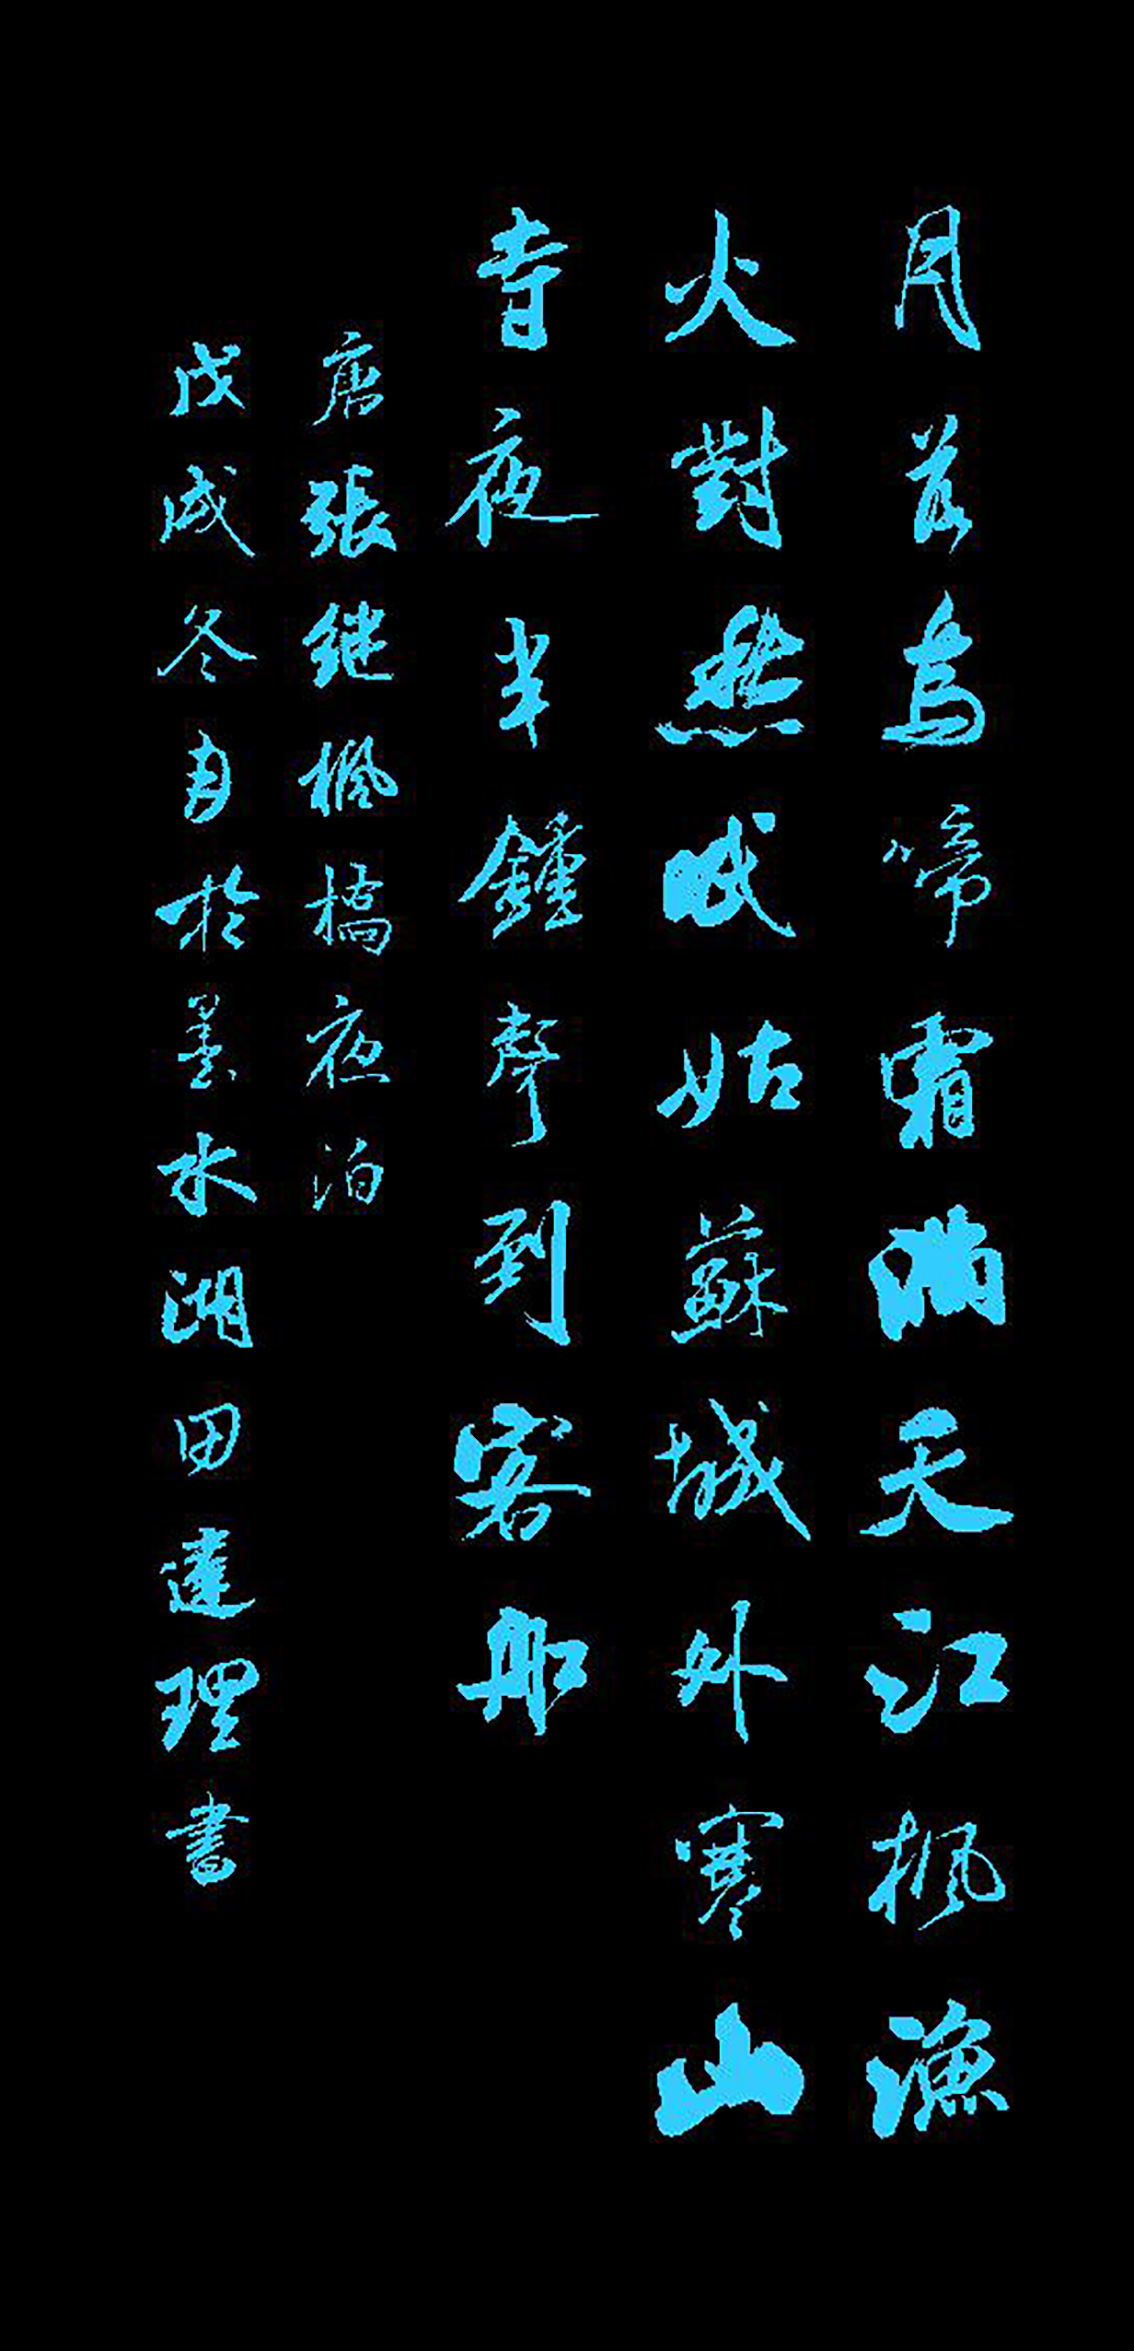 月落烏啼霜滿天江楓漁
火對愁眠姑蘇城外寒山
寺夜半鍾聲到客船
唐張继楓橋夜泊
戊戌冬月於墨水湖田達理書